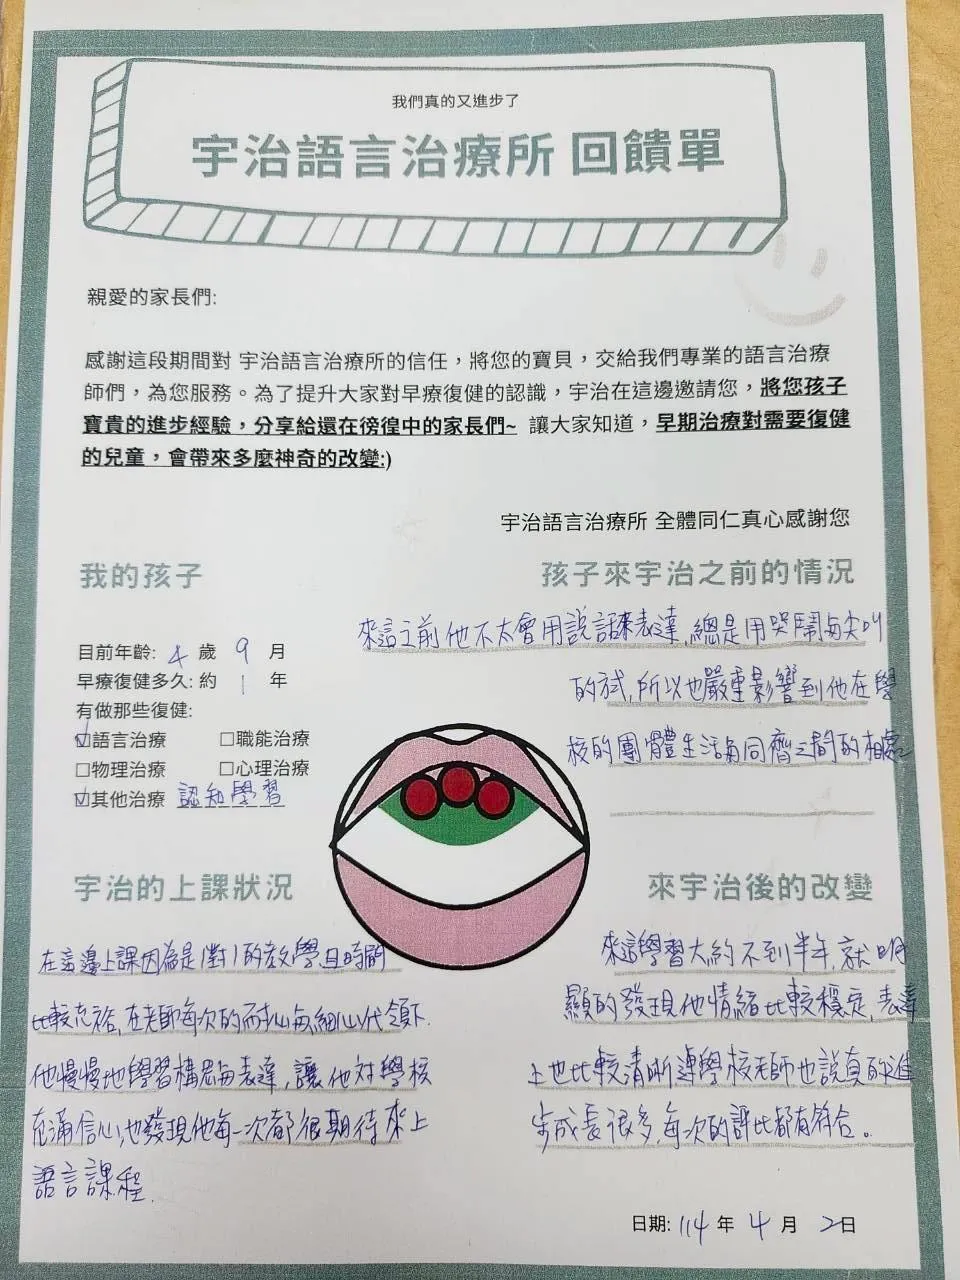 我們真的又進步了
宇治語言治療所 回饋單
親愛的家長們:
感謝這段期間對 宇治語言治療所的信任，將您的寶貝，交給我們專業的語言治療
師們，為您服務。為了提升大家對早療復健的認識，宇治在這邊邀請您，將您孩子
寶貴的進步經驗，分享給還在徬徨中的家長們~ 讓大家知道，早期治療對需要復健
的兒童，會帶來多麼神奇的改變:)
宇治語言治療所 全體同仁真心感謝您
我的孩子
目前年齡: 4 歲 9 月
早療復健多久: 約 1 年
有做那些復健:
☑語言治療 □職能治療
□物理治療 □心理治療
☑其他治療 認知學習
孩子來宇治之前的情況
來這之前他不太會用說話來表達,總是用哭鬧與尖叫
的方式,所以也嚴重影響到他在學
校的團體生活與同儕之間的相處.
宇治的上課狀況
在這邊上課因為是1對1的教學且時間
比較充裕,在老師每次的耐心與細心代領下.
他慢慢地學習構思與表達,讓他對學校
充滿信心,也發現他每一次都很期待來上
語言課程.
來宇治後的改變
來這學習大約不到半年,就明
顯的發現他情緒比較穩定,表達
上也比較清晰連學校老師也說真的進
步成長很多,每次的評比都有符合。
日期: 114 年 4 月 2日